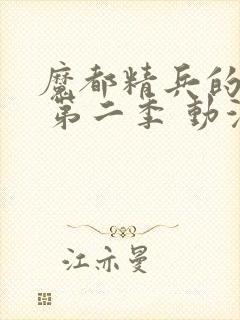 魔都精兵的
第二季 動
江亦曼